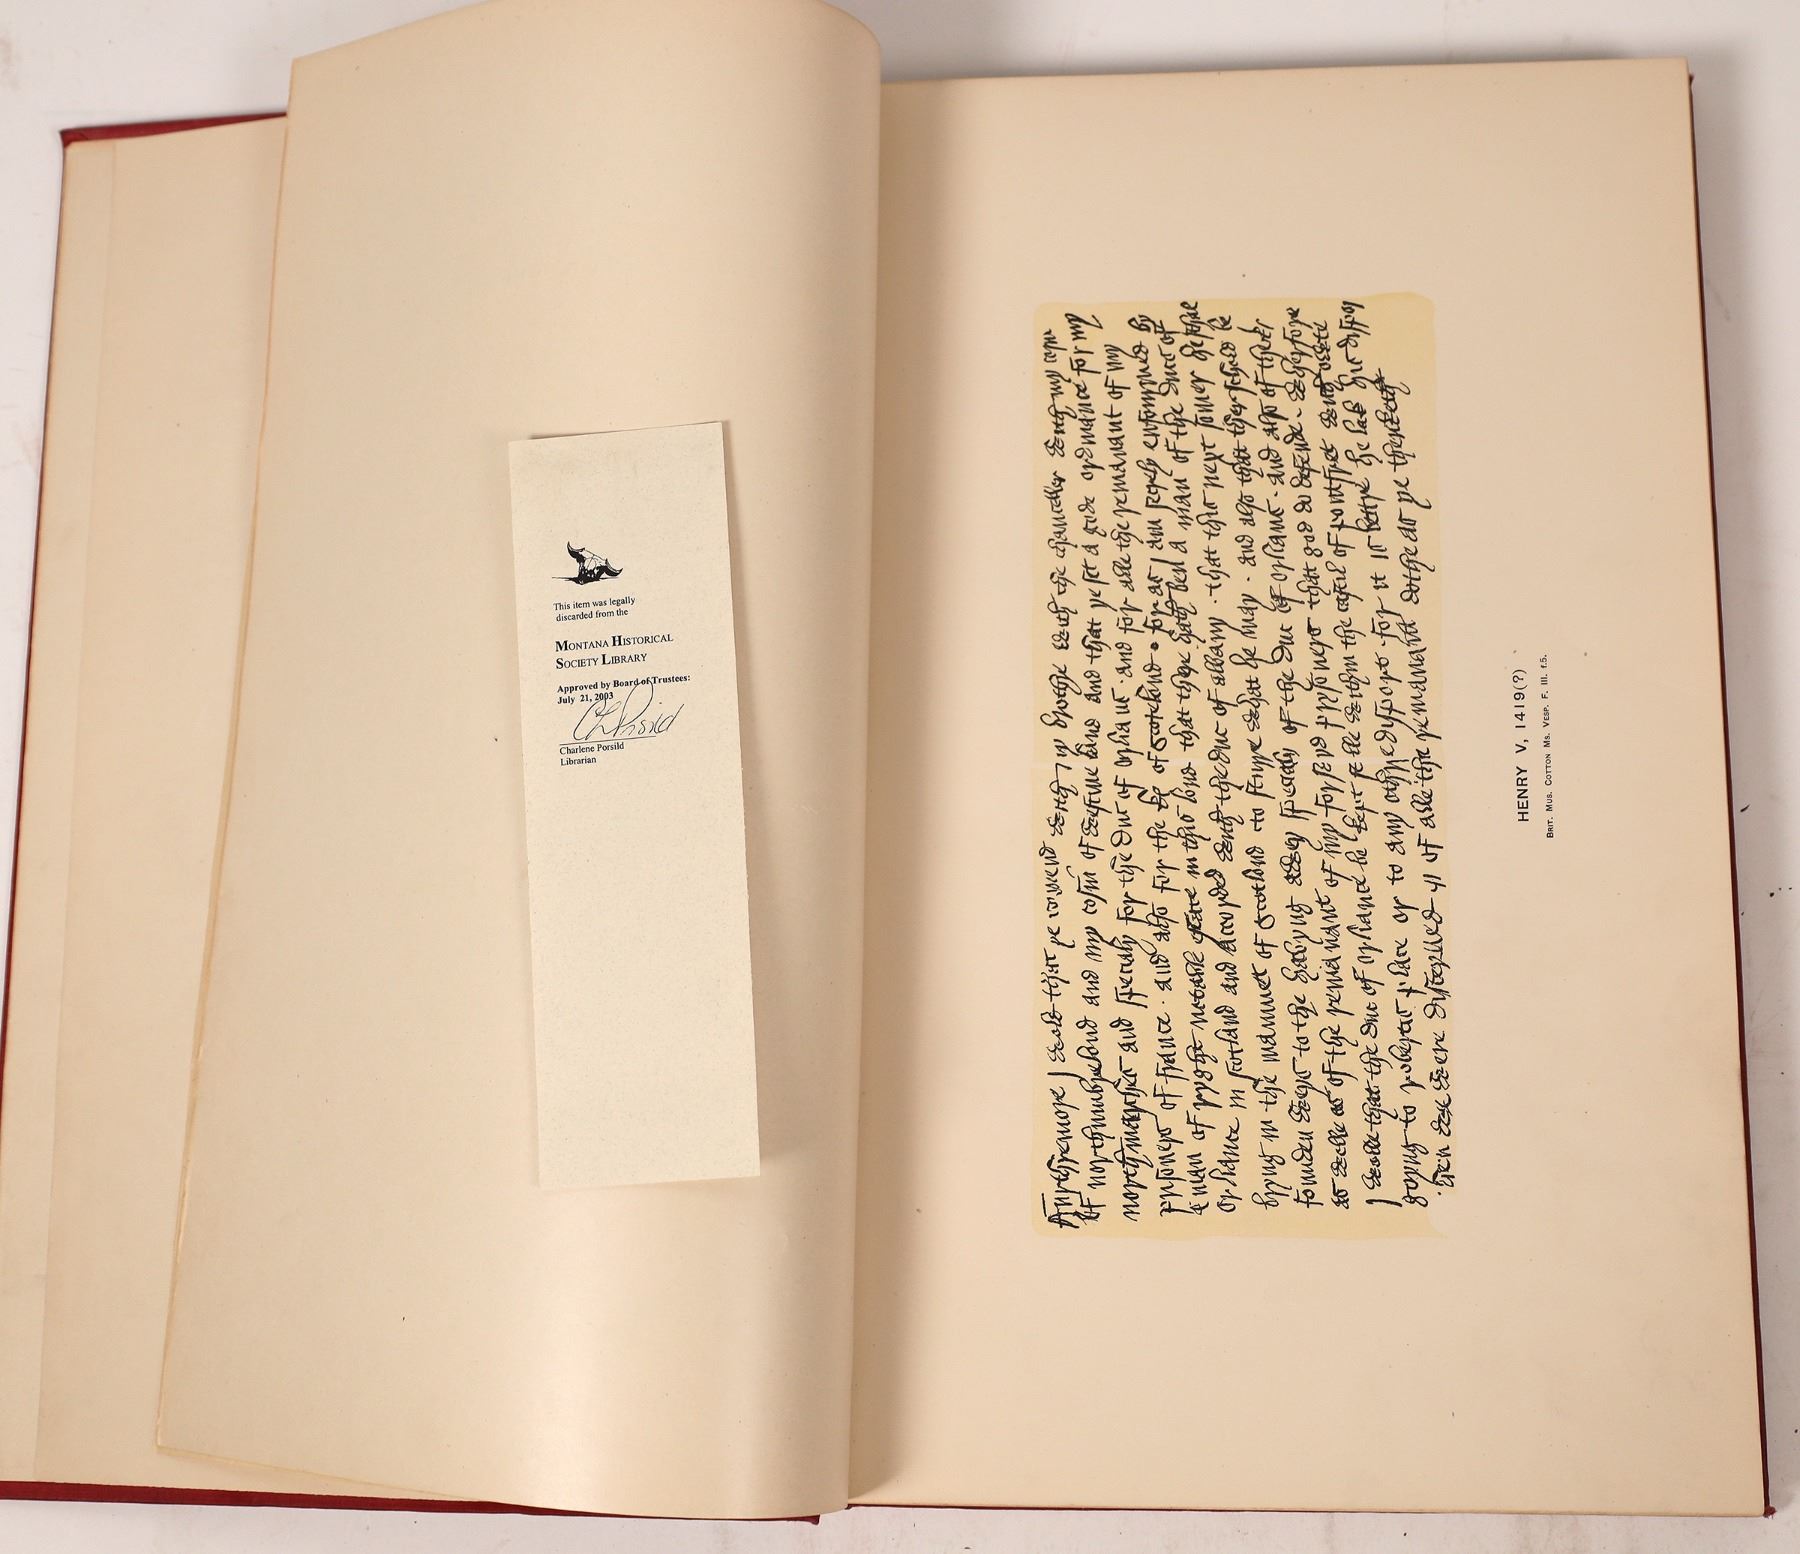 This item was legally
discarded from the
MONTANA HISTORICAL
SOCIETY LIBRARY
Approved by Board of Trustees:
July 21, 2003
CL Porsild
Charlene Porsild
Librarian
Furthremore I wold that ye comend with my brothre with the chanceller with my cosin
of northumbrelond and my cosin of westmerland and that ye set a gode ordinance for my
north marches and specialy for the duc of orlians · and for alle the remanant of my
prisoners of france · and also for the k of scotelond · for as I am secrely enfourmed by
a man of ryght notable estate in this lond that there hath ben a man of the duc of
orliance in scotland and accorded with the duc of albany · that this next somer he schal
bryng in the mamuet of scotland to sturre what he may · and also that ther schold be
founden weyes to the havyng awey specialy of the duc of orlians · and also of the k
as welle as of the remanant of my forseyd prysoners that god do defende · wherfore
I wolle that the duc of orliance be kept stille withyn the castil of pontfret with owte
goyng to robertis place or to any othre disport · for it is bettre he lak his disport
then we were disceyved of alle the remanant dothe as ye thenketh
HENRY V, 1419(?)
BRIT. MUS. COTTON MS. VESP. F. III. f.5.